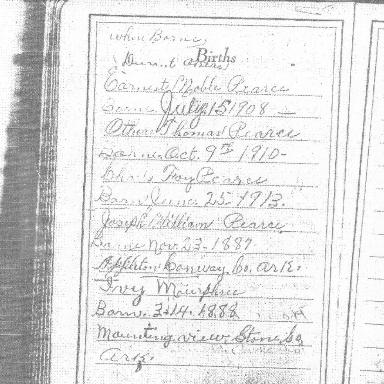 when Borne
Births
Earnest Noble Pearce
Borne July 15 1908
Other Thomas Pearce
Borne Oct. 9th 1910-
Troy Pearce
Born June 25-1913.
Joseph William Pearce
Borne Nov 23-1887.
Appleton Conway Co. Ark.
Ivey Murphree
Born. 3-14-1888
Mounting view Stone Co
Ark.